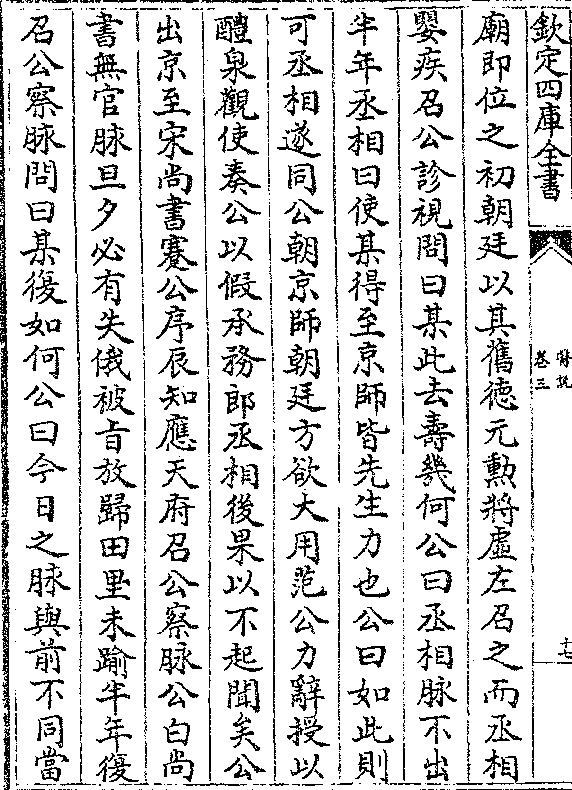 欽定四庫全書
醫說
卷三
十七
廟即位之初朝廷以其舊德元勲將虛左召之而丞相
嬰疾召公診視問曰某此去壽幾何公曰丞相脉不出
半年丞相曰使某得至京師皆先生力也公曰如此則
可丞相遂同公朝京師朝廷方欲大用范公力辭授以
醴泉觀使奏公以假承務郎丞相後果以不起聞矣公
出京至宋尚書蹇公序辰知應天府召公察脉公白尚
書無官脉旦夕必有失俄被㫖放歸田里未踰半年復
召公察脉問曰某復如何公曰今日之脉與前不同當